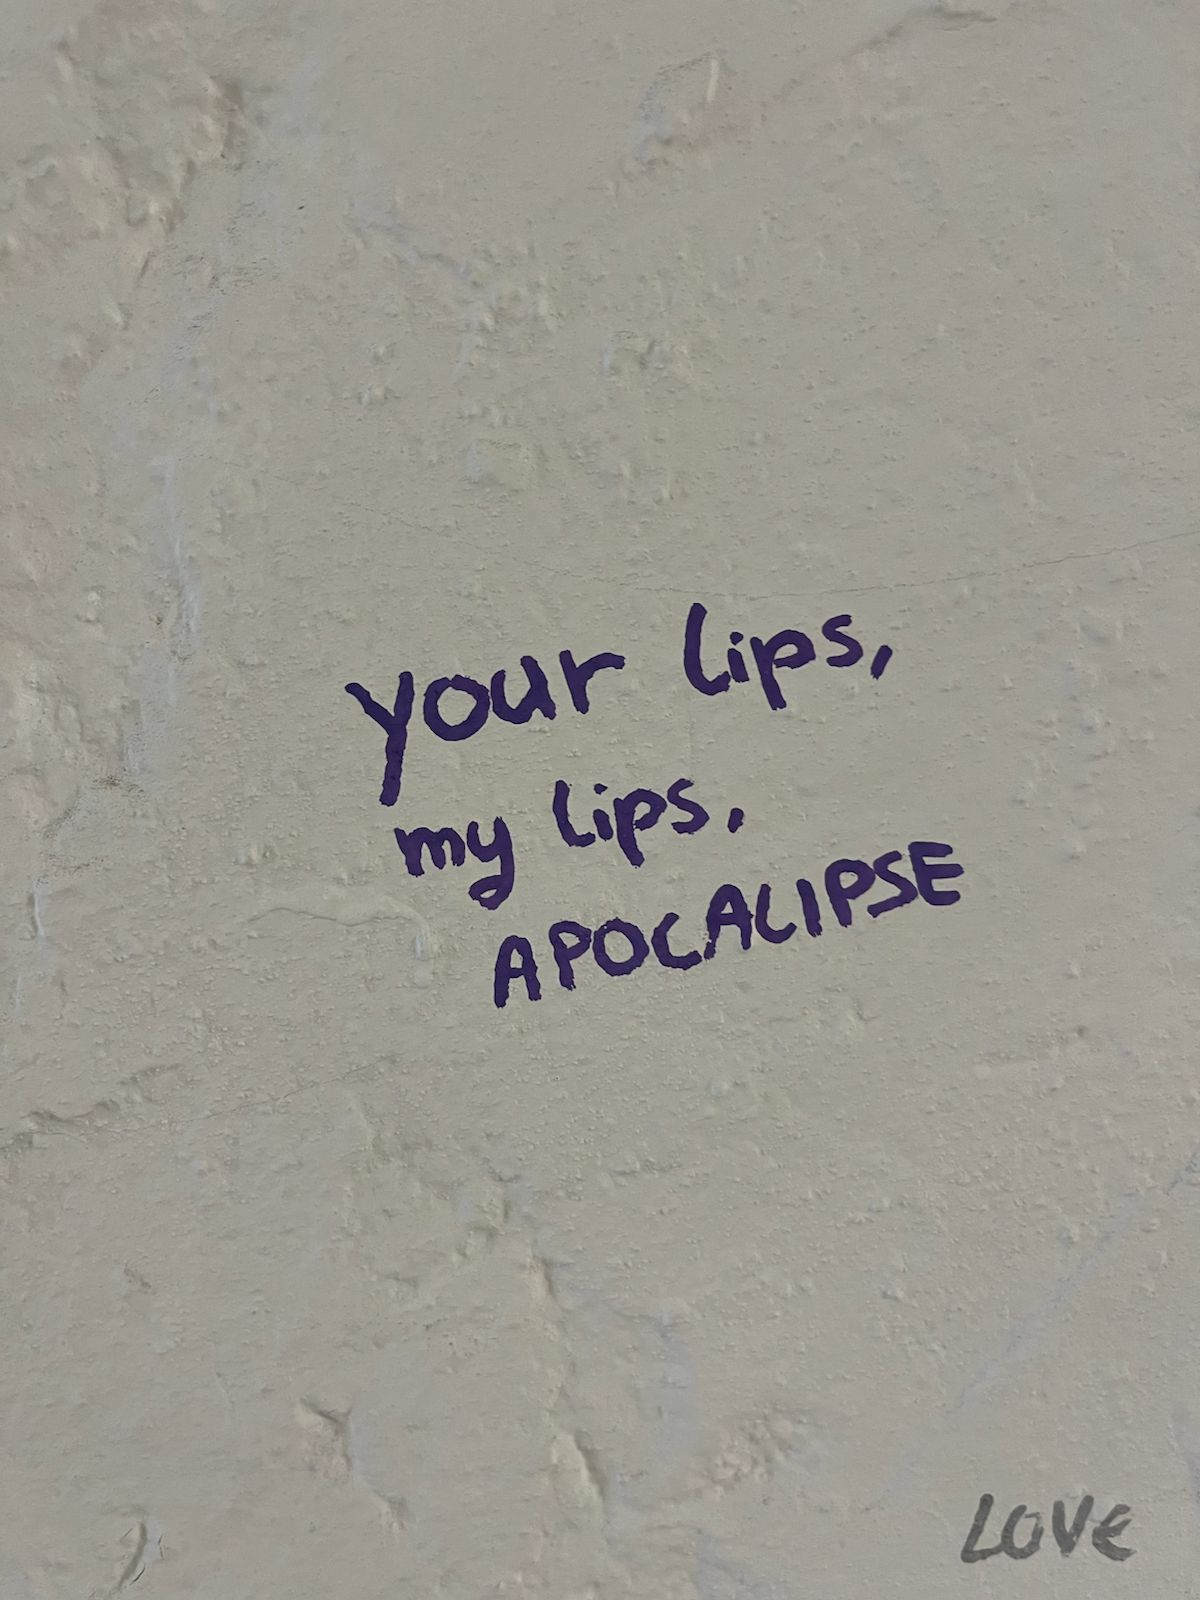 your lips,
my lips,
APOCALIPSE
LOVE